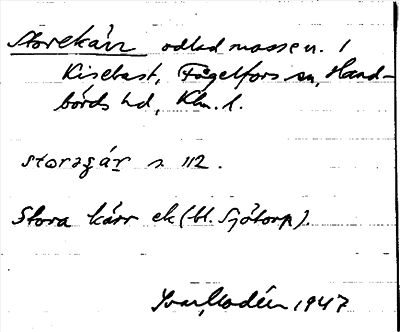 Storekärr odlad mosse n. i
Kisebast, Fågelfors sn, Hand-
börds hd, Klm. l.
storaʒär s 112.
Stora kärr ek (bl. Sjötorp)
Ivar Modéer 1947